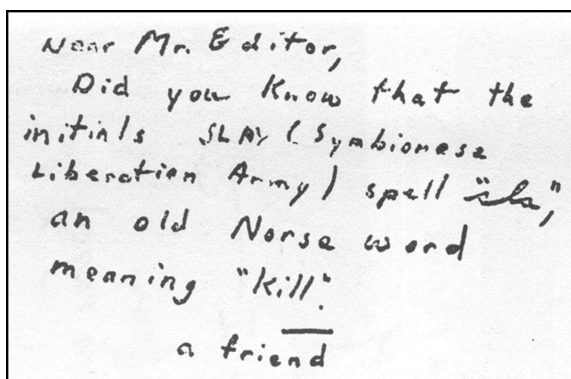 Dear Mr. Editor,
Did you know that the
initials SLAY (Symbionese
Liberation Army) spell "sla",
an old Norse word
meaning "kill".
a friend